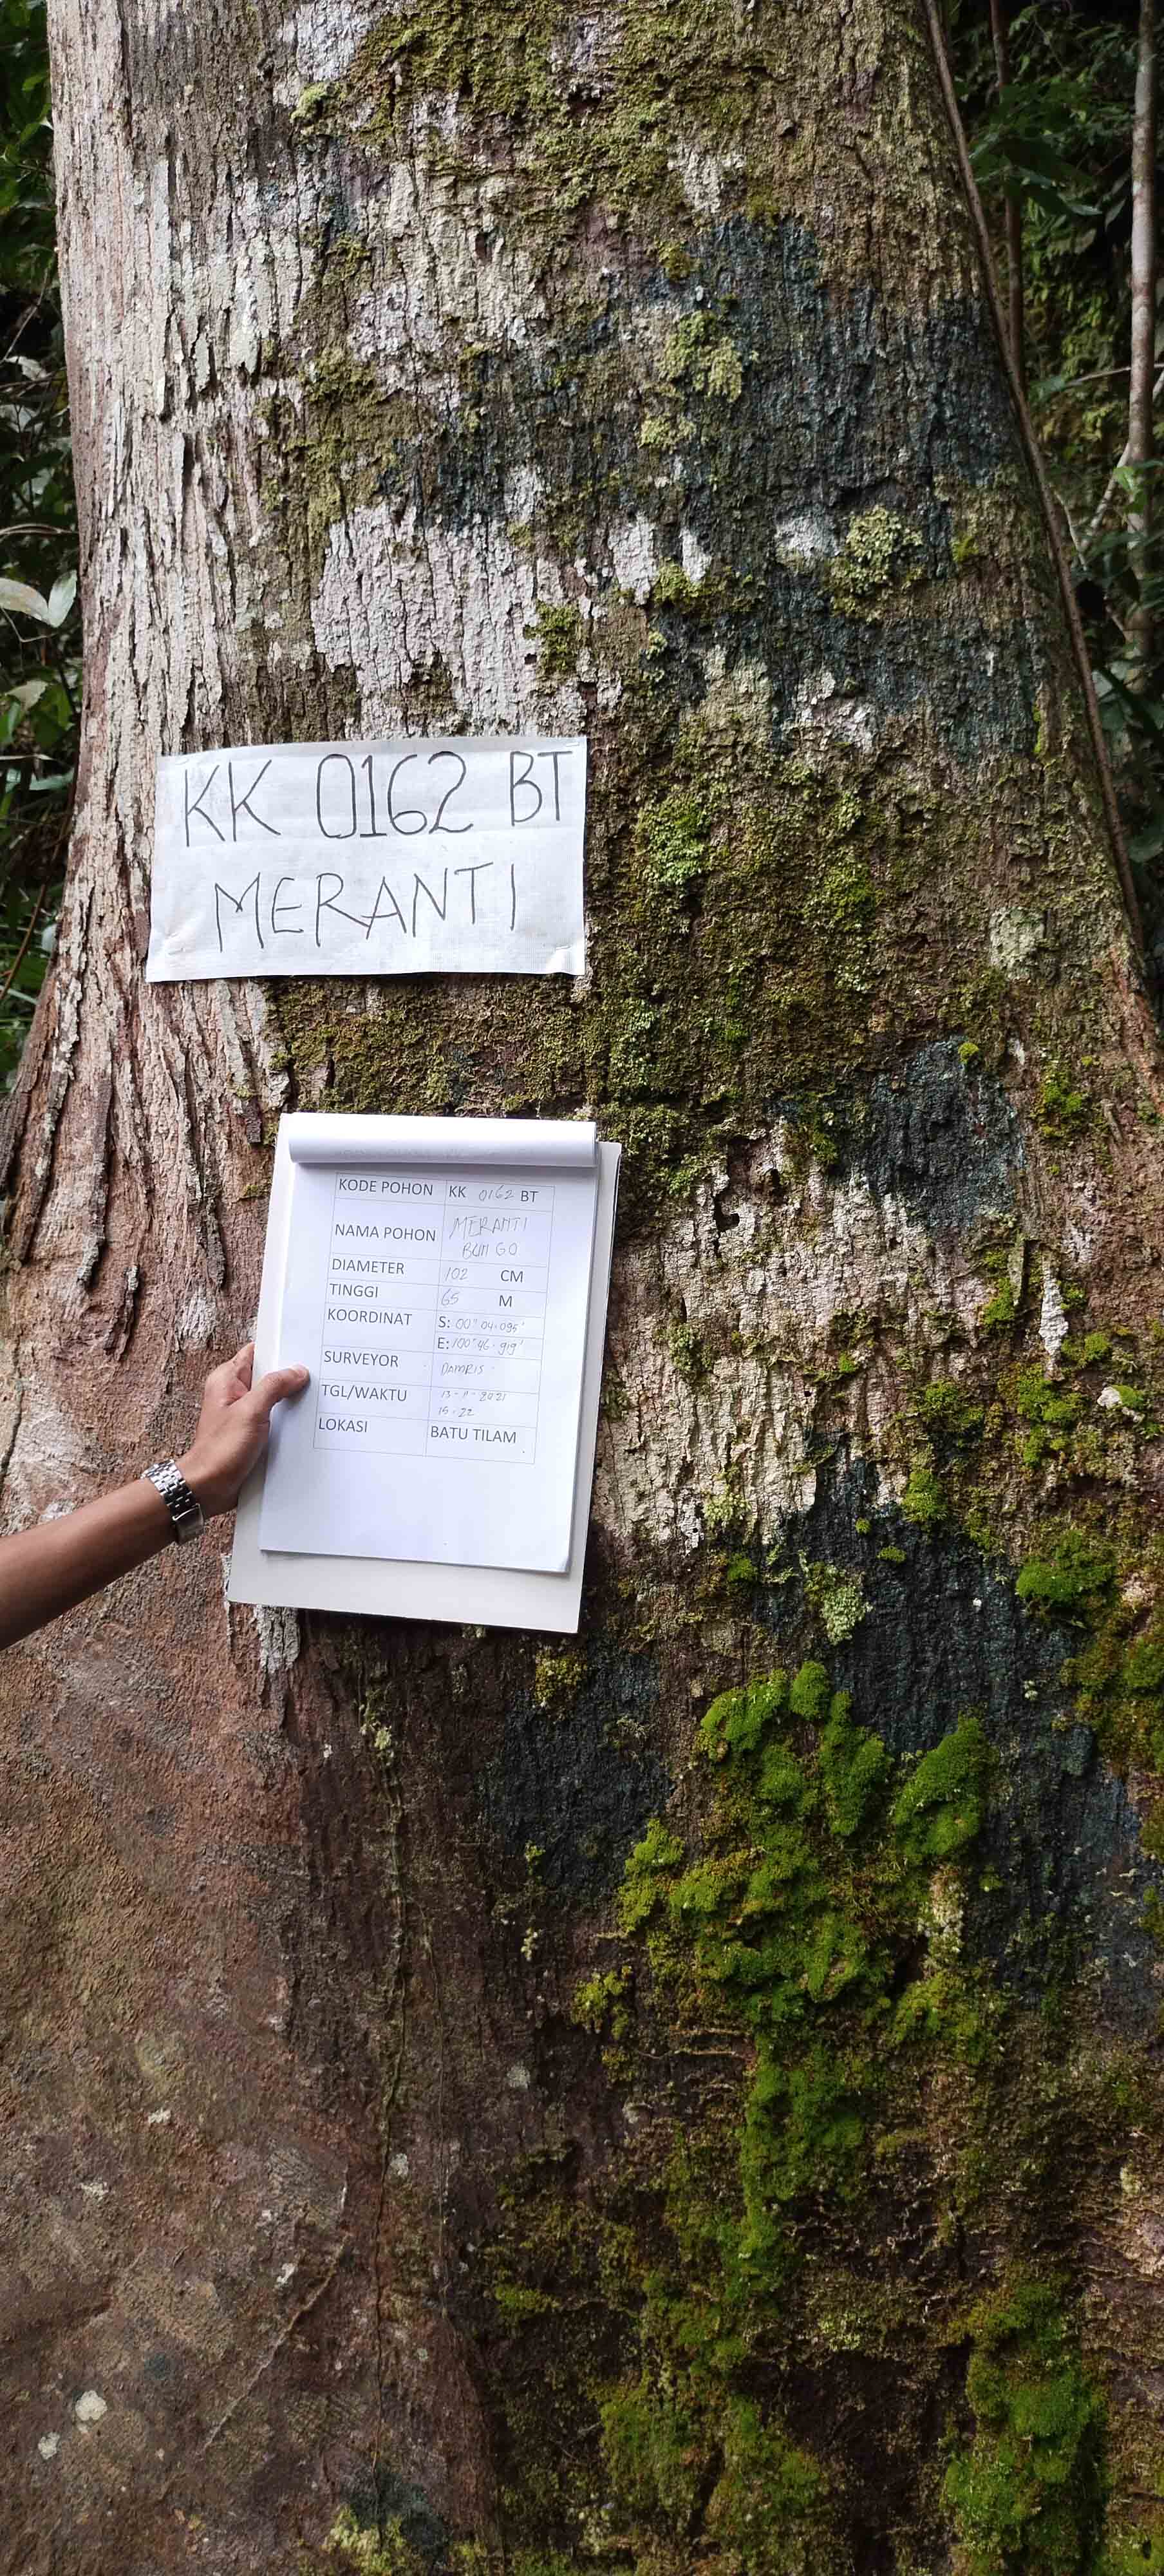 KK 0162 BT
MERANTI
KODE POHON KK 0162 BT
NAMA POHON MERANTI
BUNGO
DIAMETER 102 CM
TINGGI 65 M
KOORDINAT S: 00° 04. 095'
E: 100° 46. 919'
SURVEYOR DAMRIS
TGL/WAKTU 13 - 11 - 2021
15 . 22
LOKASI BATU TILAM